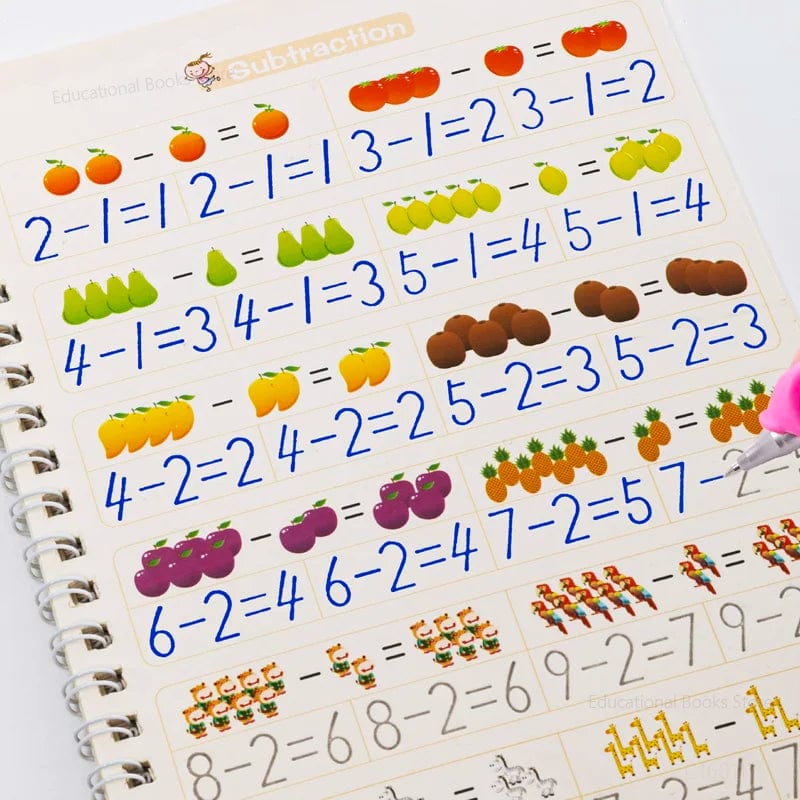 Educational Books
Subtraction
− =
2−1=1 2−1=1
− =
3−1=2 3−1=2
− =
4−1=3 4−1=3
− =
5−1=4 5−1=4
− =
4−2=2 4−2=2
− =
5−2=3 5−2=3
− =
6−2=4 6−2=4
− =
7−2=5 7−2=
− =
8−2=6 8−2=6
− =
9−2=7 9−2
Educational Books Store
−
=
−2=4 7